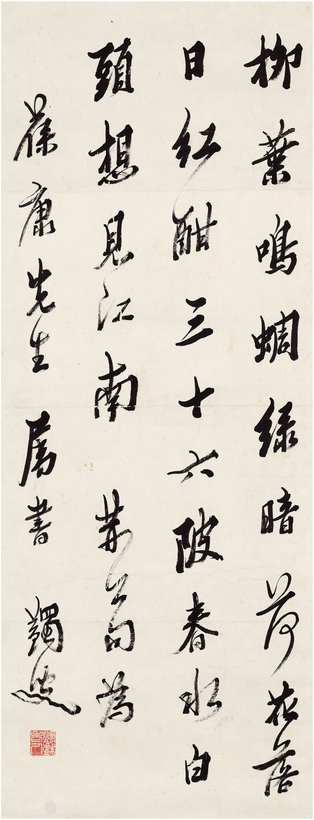 柳葉鳴蜩緑暗荷花落
日紅酣三十六陂春水白
頭想見江南 荊公句為
葆康先生屬書 蠲叟